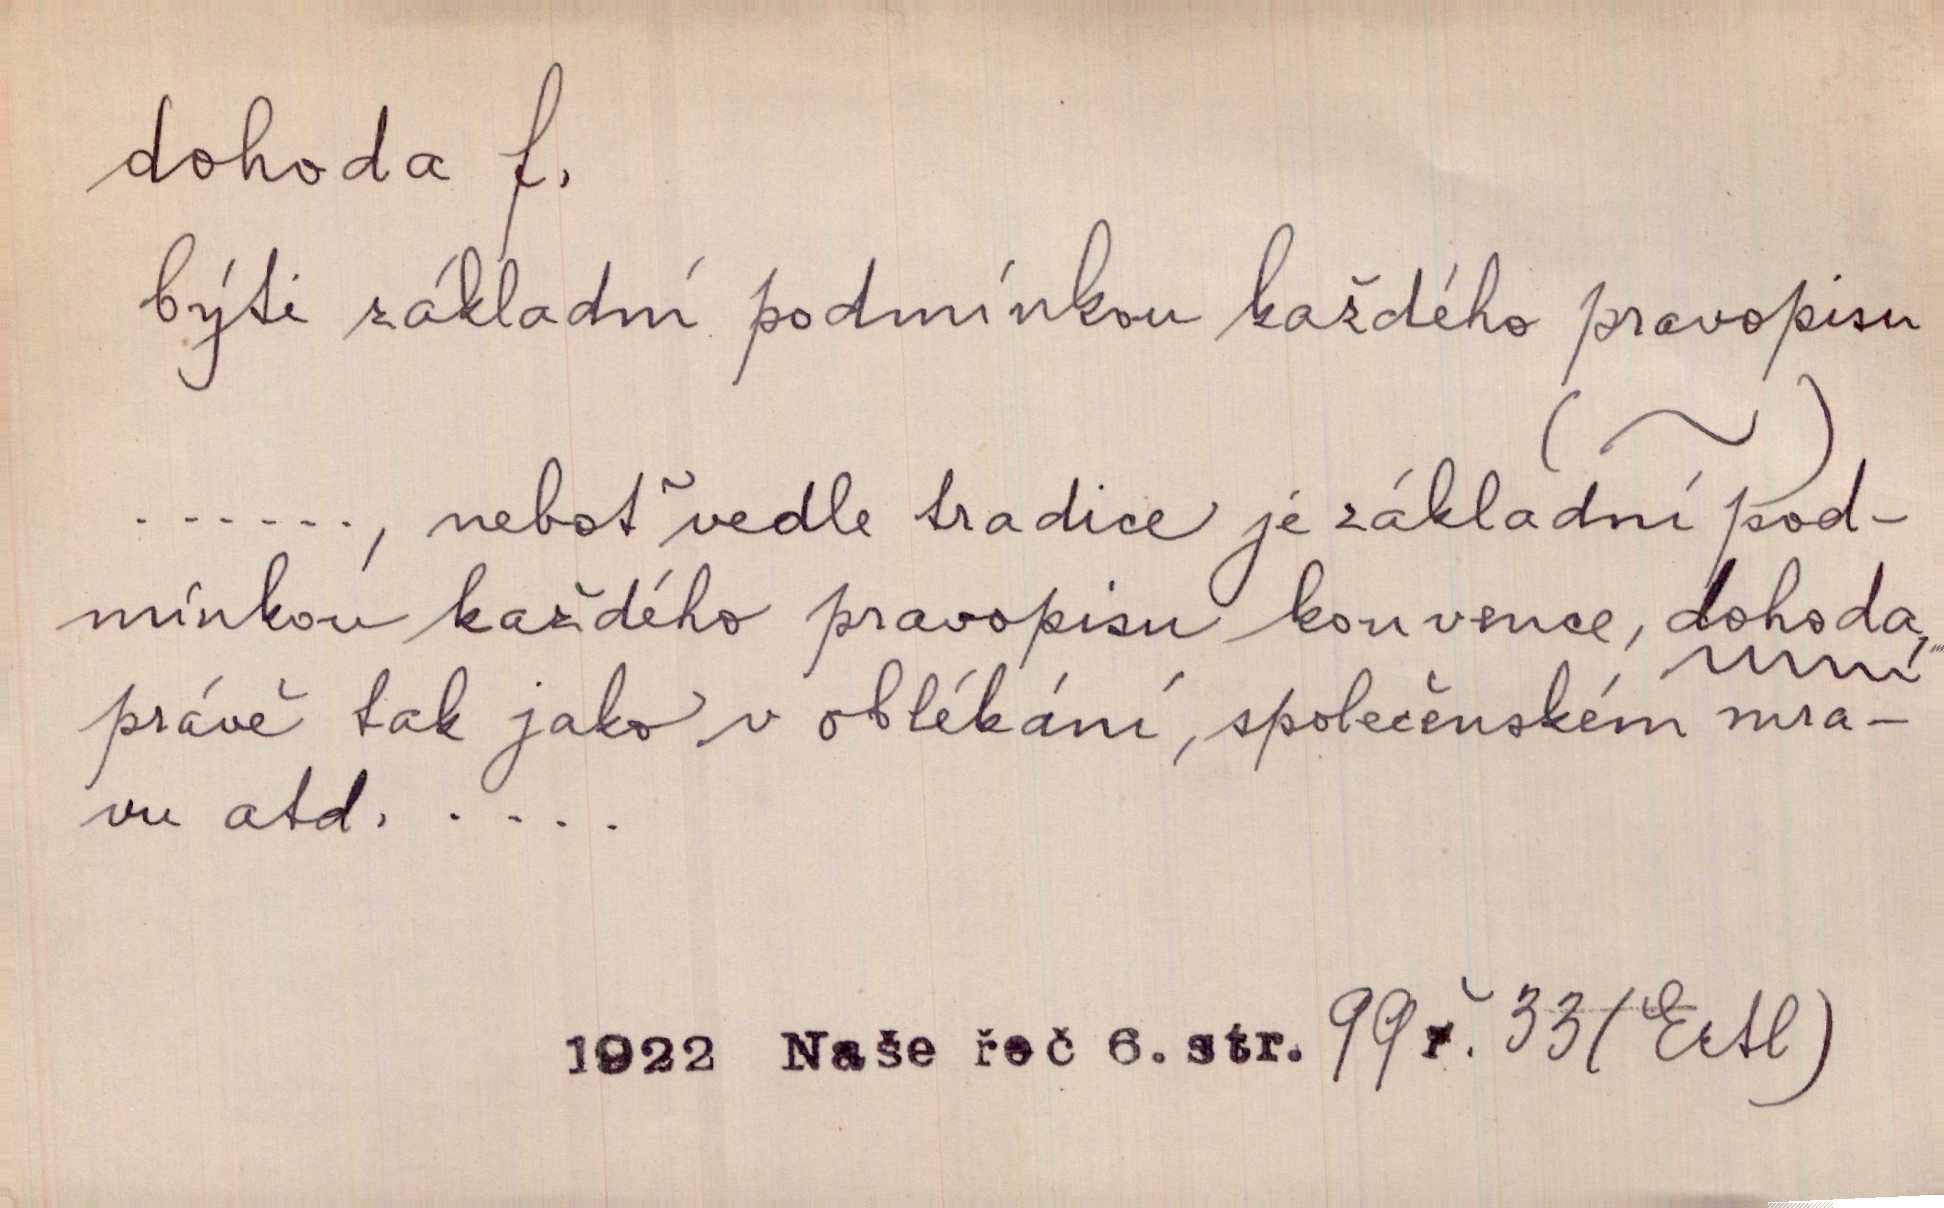 dohoda f.
býti základní podmínkou každého pravopisu
( ~ )
......., neboť vedle tradice je základní pod-
mínkou každého pravopisu konvence, dohoda,
právě tak jako v oblékání, společenském mra-
vu atd. ....
1922 Naše řeč 6. str. 99 ř. 33 (Ertl)